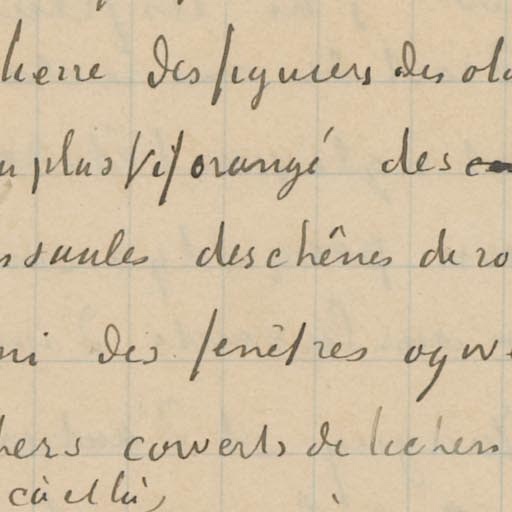 lierre des figuiers des ol
plus vif orangé des
saules des chênes de ro
ni des fenêtres ogiv
hers couverts de lichen
çà et là,